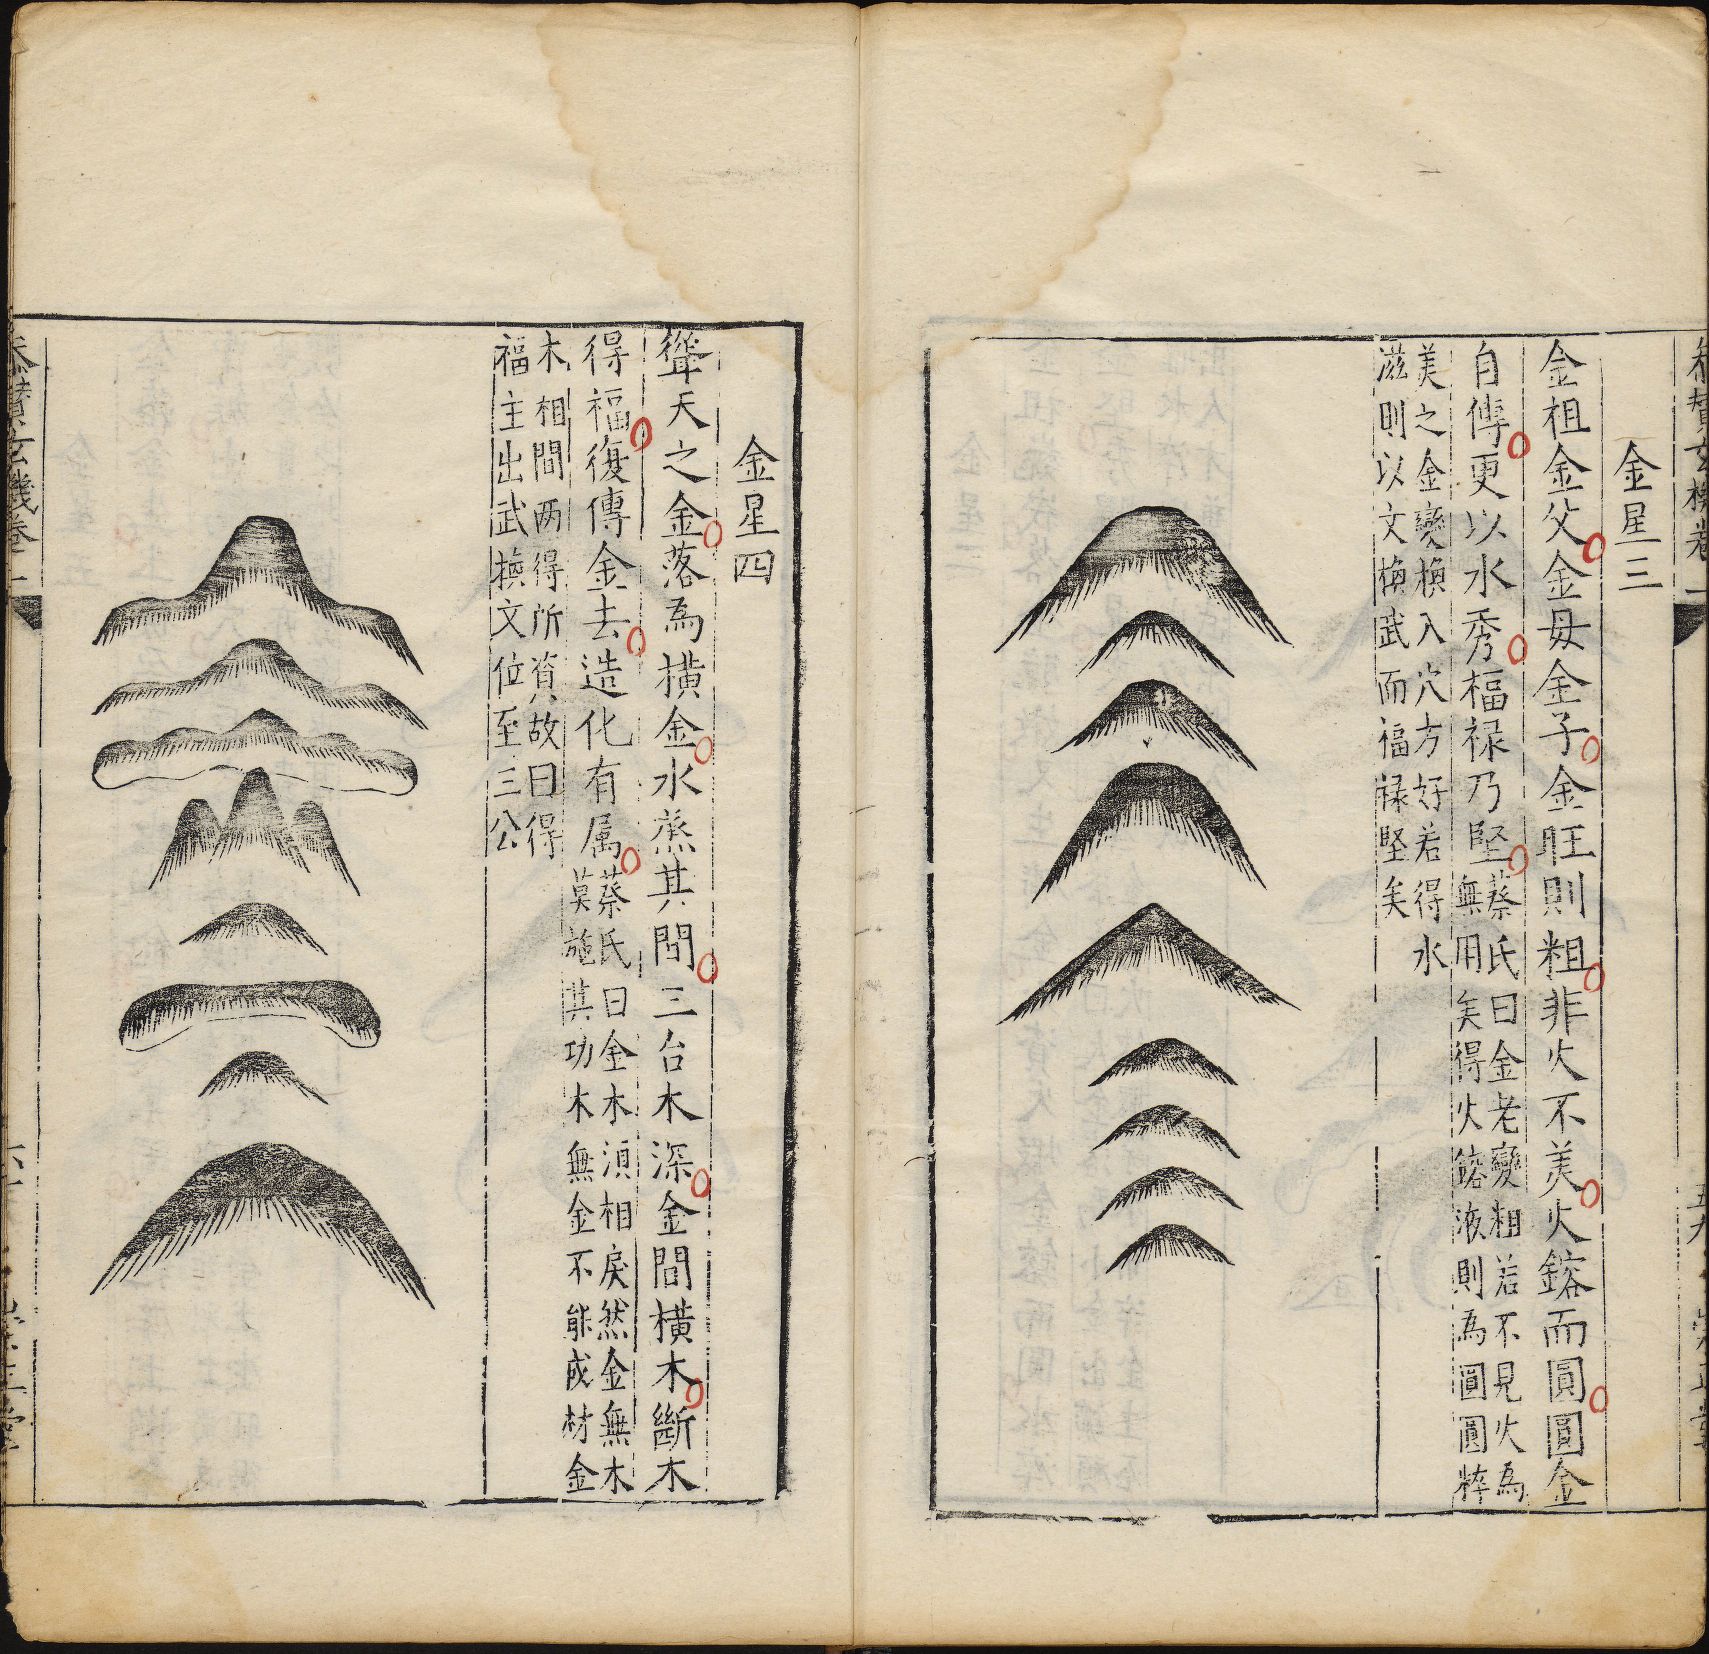 參贊玄機卷一
五九
崇正堂
金星三
金祖金父金母金子金旺則粗非火不美火鎔而圓圓金
自傳更以水秀福禄乃堅
蔡氏曰金老變粗若不見火為
無用矣得火鎔液則為圓圓粹
美之金變換入穴方好若得水
滋則以文換武而福禄堅矣
金星四
聳天之金落為橫金水𤇆其間三台木深金間橫木斷木
得福復傳金去造化有属
蔡氏曰金木湏相戾然金無木
莫施其功木無金不能成材金
木相間两得所資故曰得
福主出武換文位至三公
參贊玄機卷一